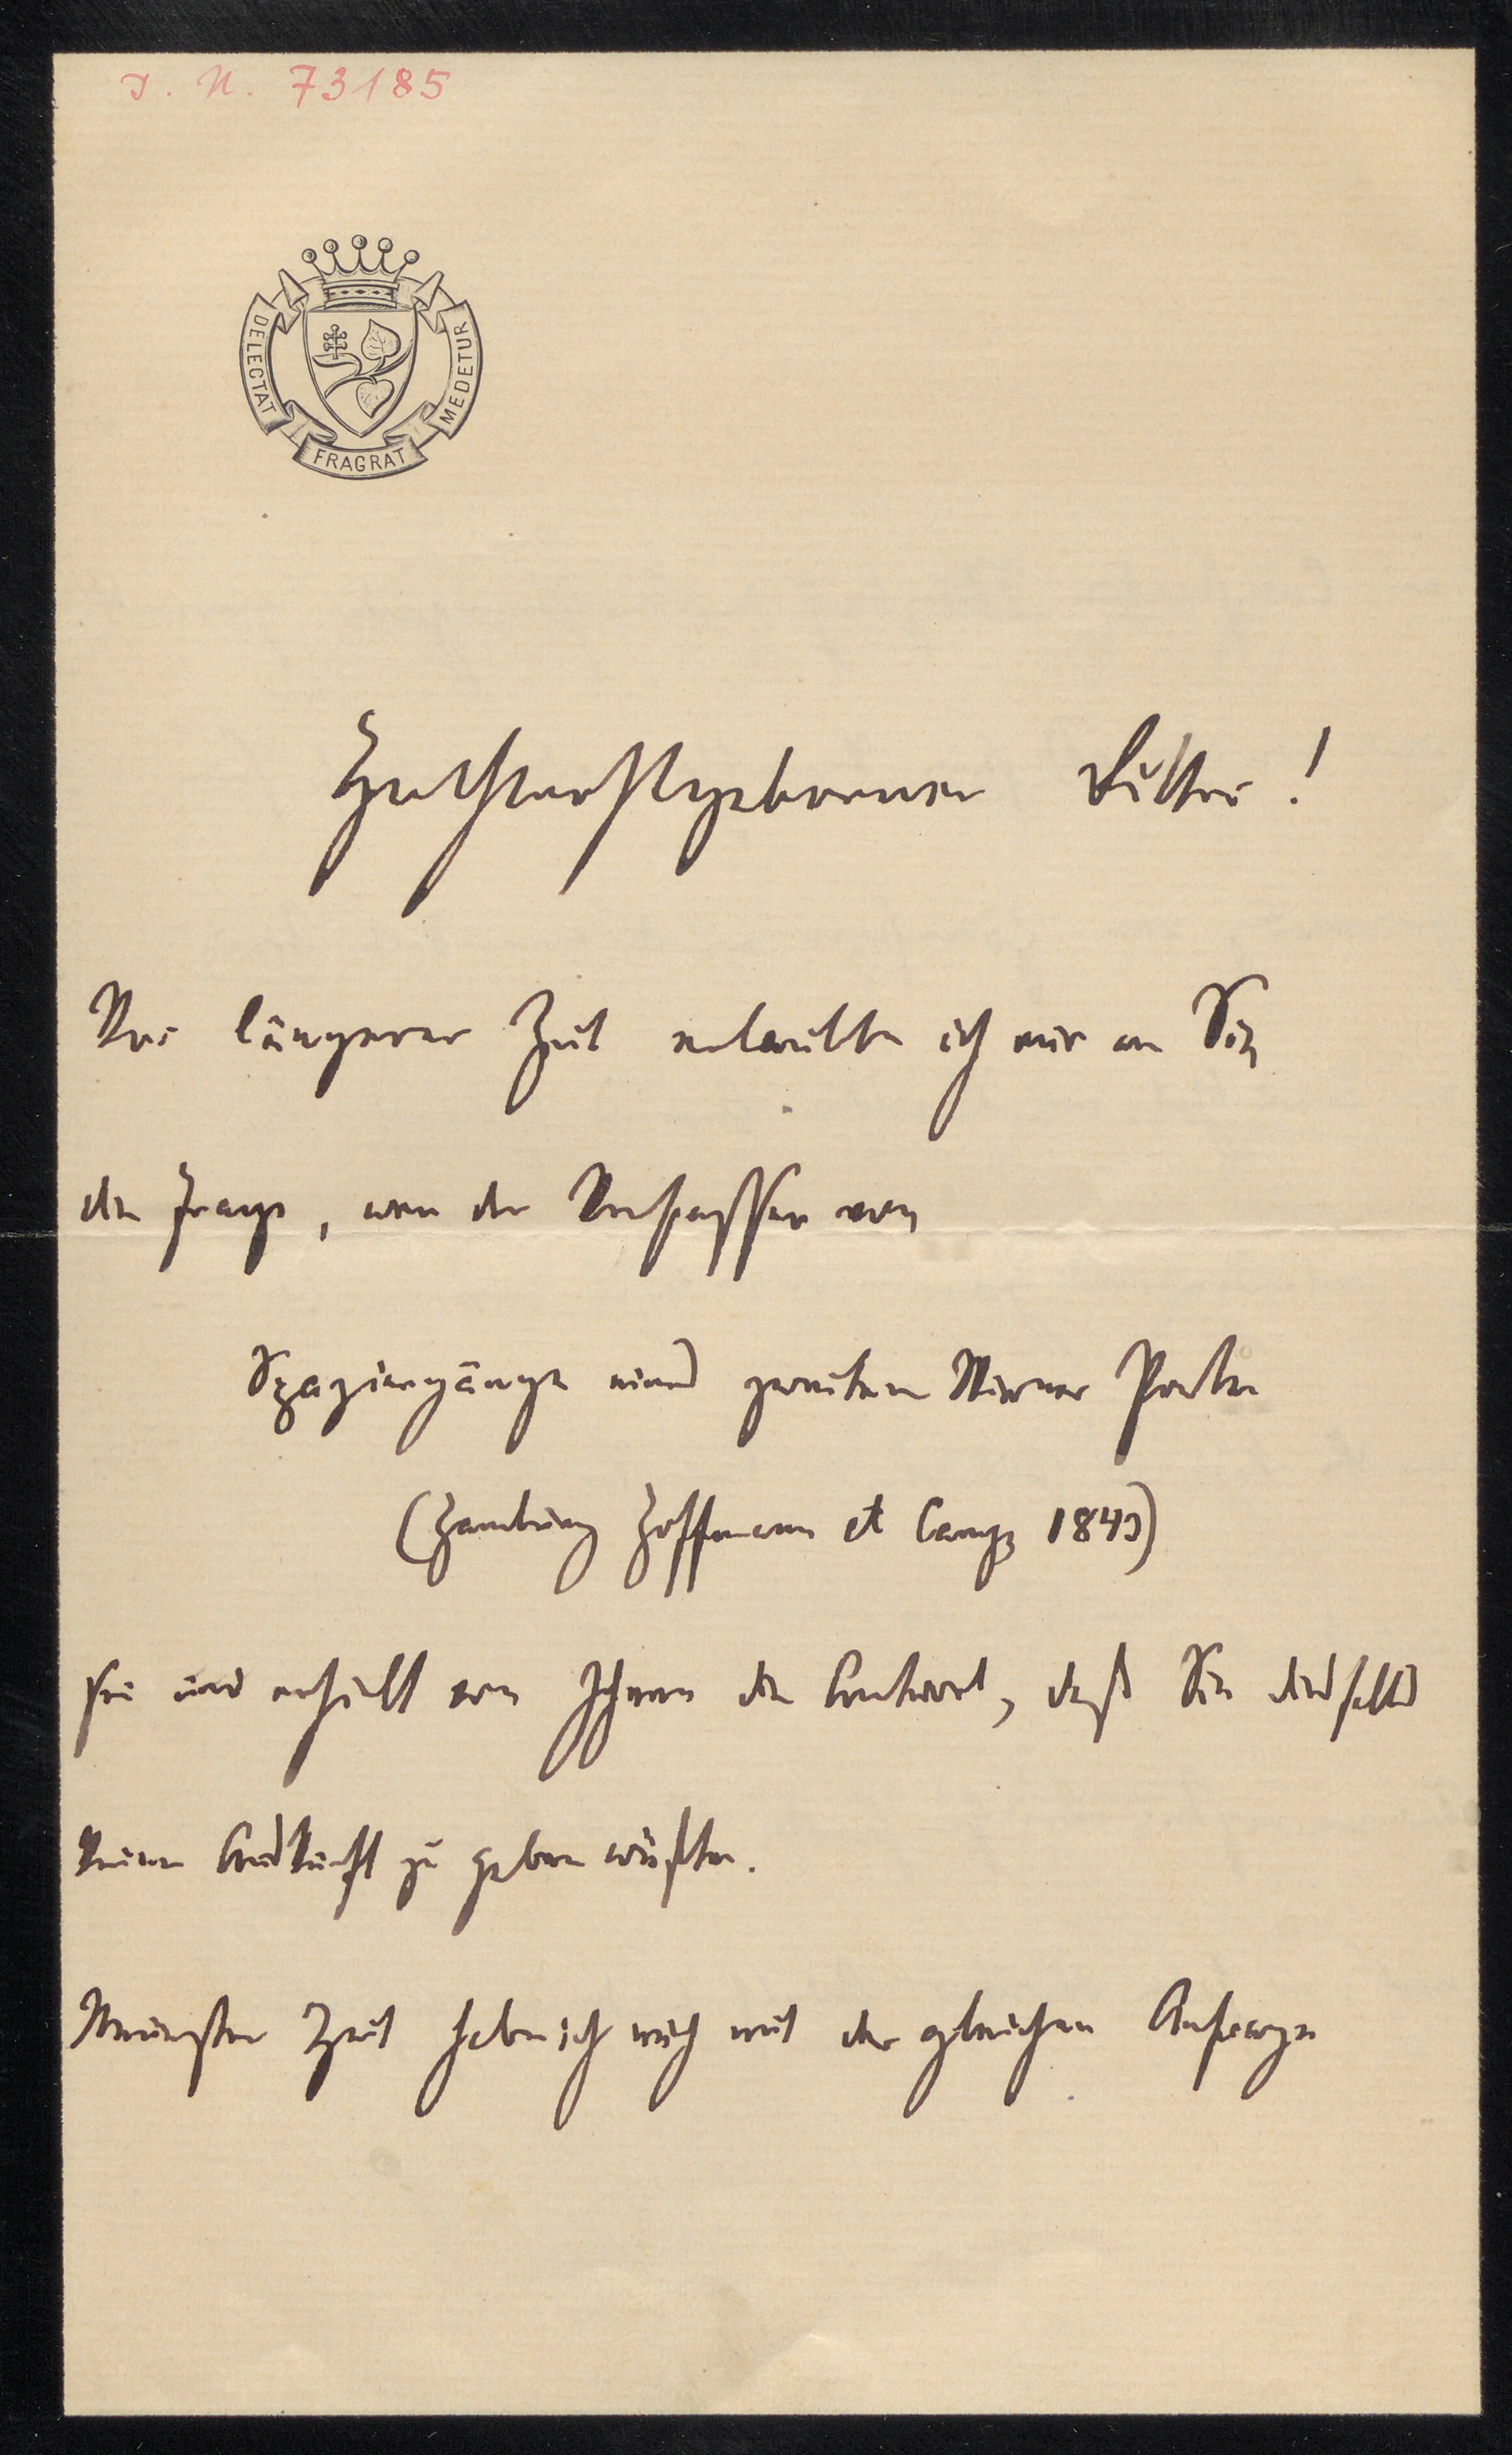 I. N. 73185
DELECTAT
FRAGRAT
MEDETUR
Hochwohlgeborener Ritter!
Vor längerer Zeit erlaubte ich mir an Sie
die Frage, wer der Verfasser von
Spaziergänge eines zweiten Wiener Poeten
(Hamburg Hoffmann et Campe
sei und erhielt von Ihnen die Antwort, daß Sie diesfalls
keine Auskunft zu geben wüßten.
Neuester Zeit habe ich mich mit der gleichen Anfrage